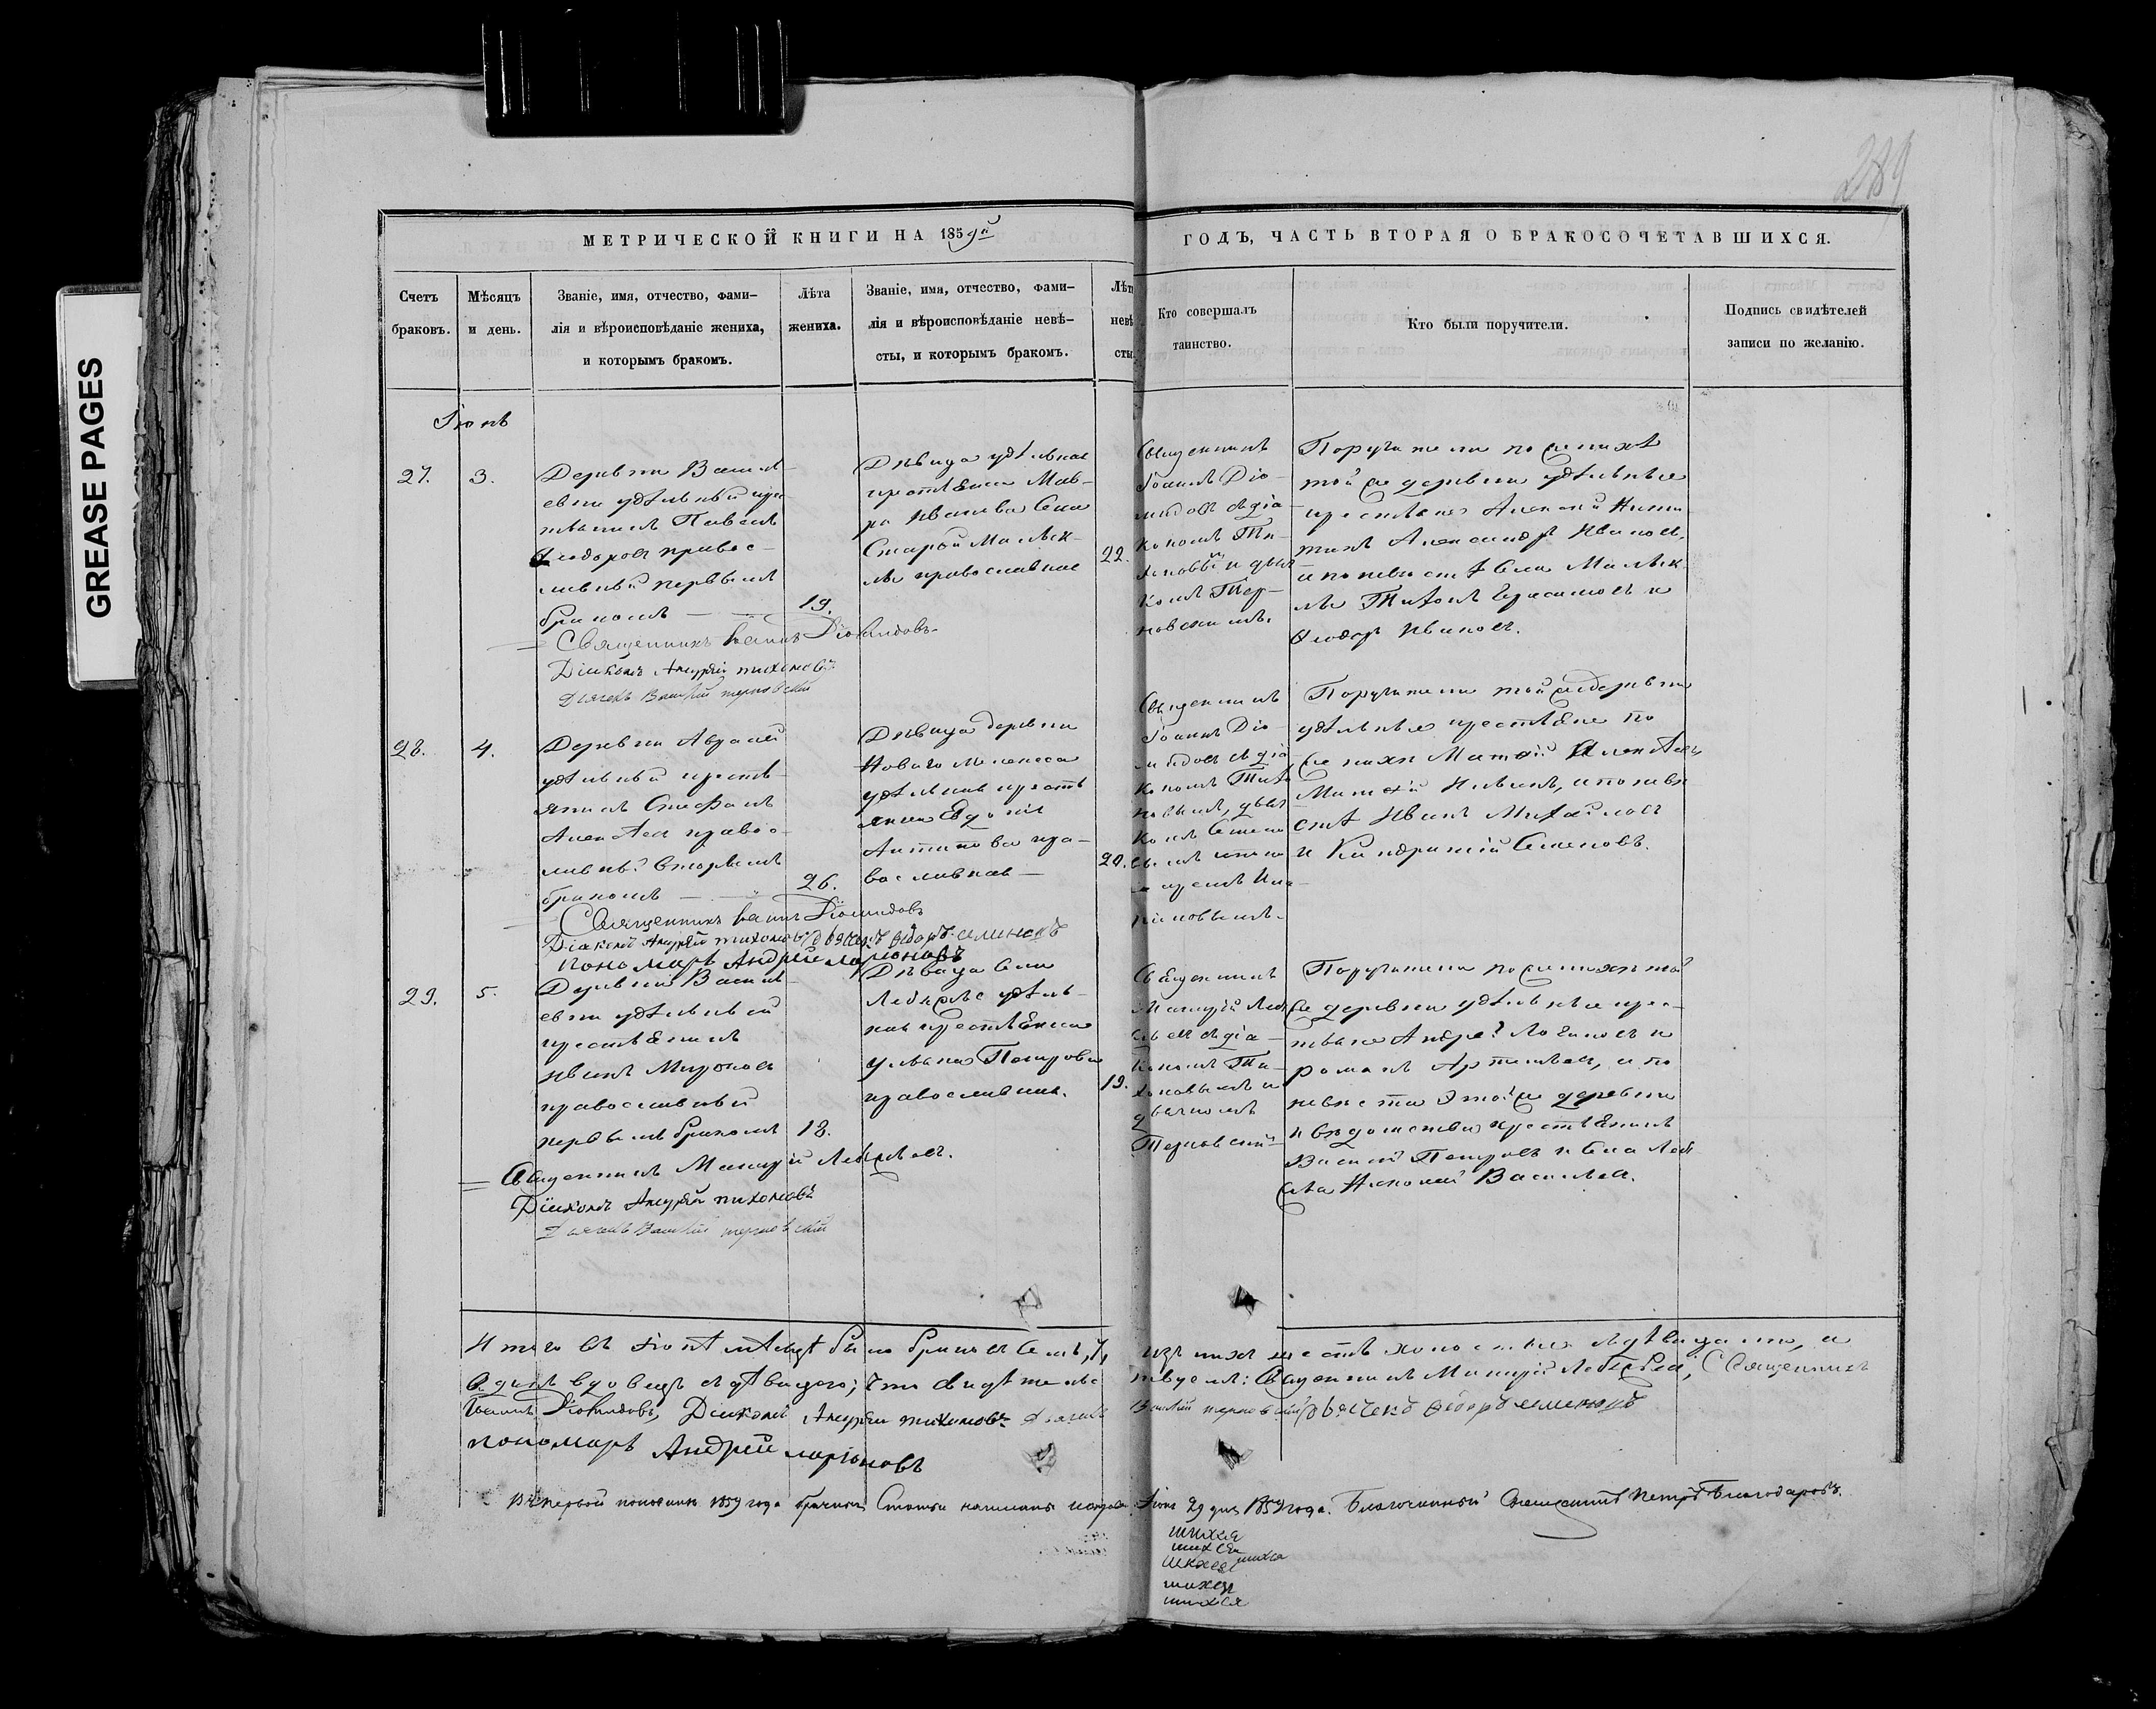 GREASE PAGES
289
МЕТРИЧЕСКОЙ КНИГИ НА 1859й
ГОДЪ, ЧАСТЬ ВТОРАЯ О БРАКОСОЧЕТАВШИХСЯ.
Счетъ
браковъ.
Мѣсяцъ
и день.
Званіе, имя, отчество, фами-
лія и вѣроисповѣданіе жениха,
и которымъ бракомъ.
Лѣта
жениха.
Званіе, имя, отчество, фами-
лія и вѣроисповѣданіе невѣ-
сты, и которымъ бракомъ.
Лѣта
невѣ
сты.
Кто совершалъ
таинство.
Кто были поручители.
Подпись свидѣтелей
записи по желанію.
Іюнь
27.
3.
Деревни Василь-
евки удѣльный кре-
стьянинъ Павелъ
Ѳеодоровъ правос-
лавный первымъ
бракомъ
19.
Дѣвица удѣльная
крестьянка Мав-
ра Иванова села
Старой Малык-
лы православная
22.
Священникъ
Іоаннъ Діо-
мидовъ съ діа-
кономъ Ти-
хоновымъ и дьяч-
комъ Тер-
новскимъ.
Поручители по женихѣ
той же деревни удѣльные
крестьяне Алексѣй Ники-
тинъ Александръ Ивановъ,
и по невѣстѣ села Малык-
лы Тихонъ Герасимовъ и
Ѳеодоръ Ивановъ.
Священникъ Іоаннъ Діомидовъ.
Діаконъ Андрей Тихоновъ
Дьячекъ Василій Терновскій
28.
4.
Деревни Авралей
удѣльный кресть-
янинъ Стефанъ
Алексѣевъ правос-
лавный вторымъ
бракомъ
26.
Дѣвица деревни
Новаго Мелекеса
удѣльная кресть
янка Евдокія
Антипова пра-
вославная
20.
Священникъ
Іоаннъ Діо-
мидовъ съ діа-
кономъ Тихо
новымъ, дьяч
комъ Семено
вымъ и поно
маремъ Ила-
ріоновымъ.
Поручители той же деревни
удѣльные крестьяне по
женихѣ Матвѣй Алексѣевъ
и по невѣ
стѣ Иванъ Михайловъ
и Кондратій Семеновъ.
Священникъ Іоаннъ Діомидовъ
Діаконъ Андрей Тихоновъ дьячекъ Ѳедоръ Семеновъ
пономарь Андрей Ларіоновъ
29.
5.
Деревни Василь-
евки удѣльный
крестьянинъ
Иванъ Мироновъ
православный
первымъ бракомъ
18.
Дѣвица села
Лебяжья удѣль-
ная крестьянка
Ульяна Петрова
православная.
19.
Священникъ
съ діа-
кономъ Ти-
хоновымъ и
дьячкомъ
Терновскимъ
Поручители по женихѣ той
же деревни удѣльные крес-
тьяне Андрей Логиновъ и
Романъ Артемьевъ, и по
невѣстѣ этой же деревни
и вѣдомства крестьянинъ
Василій Петровъ и села Леб
яжья Николай Васильевъ.
Діаконъ Андрей Тихоновъ
Дьячекъ Василій Терновскій
Итого въ Іюнѣ мѣсяцѣ было браковъ семь, 7,
изъ нихъ шесть холостыхъ съ дѣвицами, и
одинъ вдовецъ съ дѣвицею; въ чемъ свидѣтельс
твуемъ: Священникъ Лебедевъ, Священникъ
Іоаннъ Діомидовъ, Діаконъ Андрей Тихоновъ дьячекъ
Василій Терновскій дьячекъ Ѳедоръ Семеновъ
пономарь Андрей Ларіоновъ
Въ первой половинѣ 1859 года брачныя статьи
Іюня 29 дня 1859 года. Благочинный Священникъ Петръ Благодаровъ.
шихся
шихся
шихся шихся
шихся
шихся